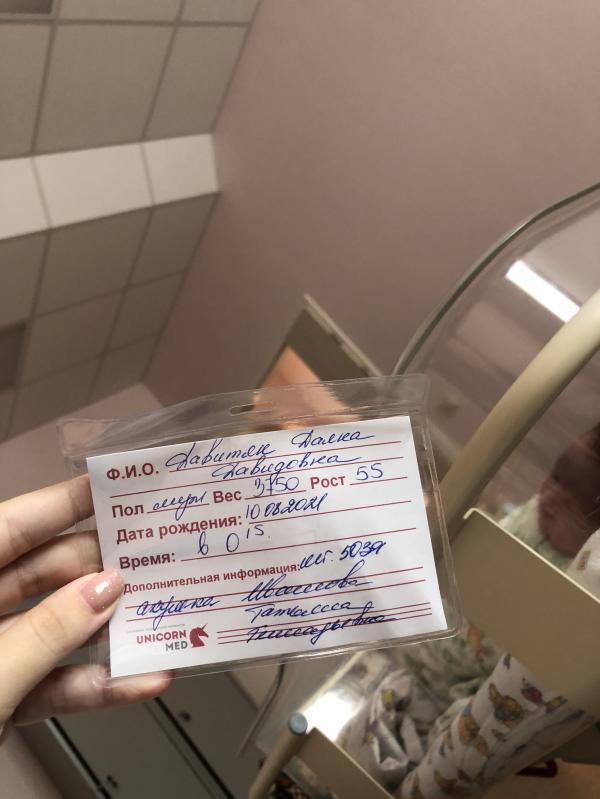 Ф.И.О. Давитян Даяна
Давидовна
Пол Вес 3750 Рост 55
Дата рождения: 10 08 2021
Время: в 0 15
Дополнительная информация:
акушерка Иванова
UNICORN
MED